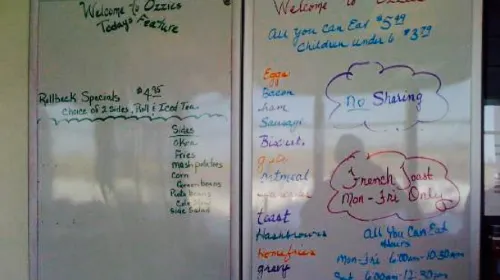 Welcome to Ozzies
Todays Feature
Rollback Specials $4.95
Choice of 2 Sides, Roll & Iced Tea
Sides
okra
Fries
mashpotatoes
Corn
Greenbeans
Pintobeans
Cole Slaw
Side Salad
Welcome to Ozzies
All you Can Eat $5.99
Children under 6 $3.79
Eggs
Bacon
Ham
Sausage
Biscuit
grits
Oatmeal
Toast
Hashbrowns
Homefries
gravy
No Sharing
French Toast
Mon-Fri Only
All You Can Eat
Hours
Mon-Fri 6:00am-10:30am
Sat 6:00am-12:30pm